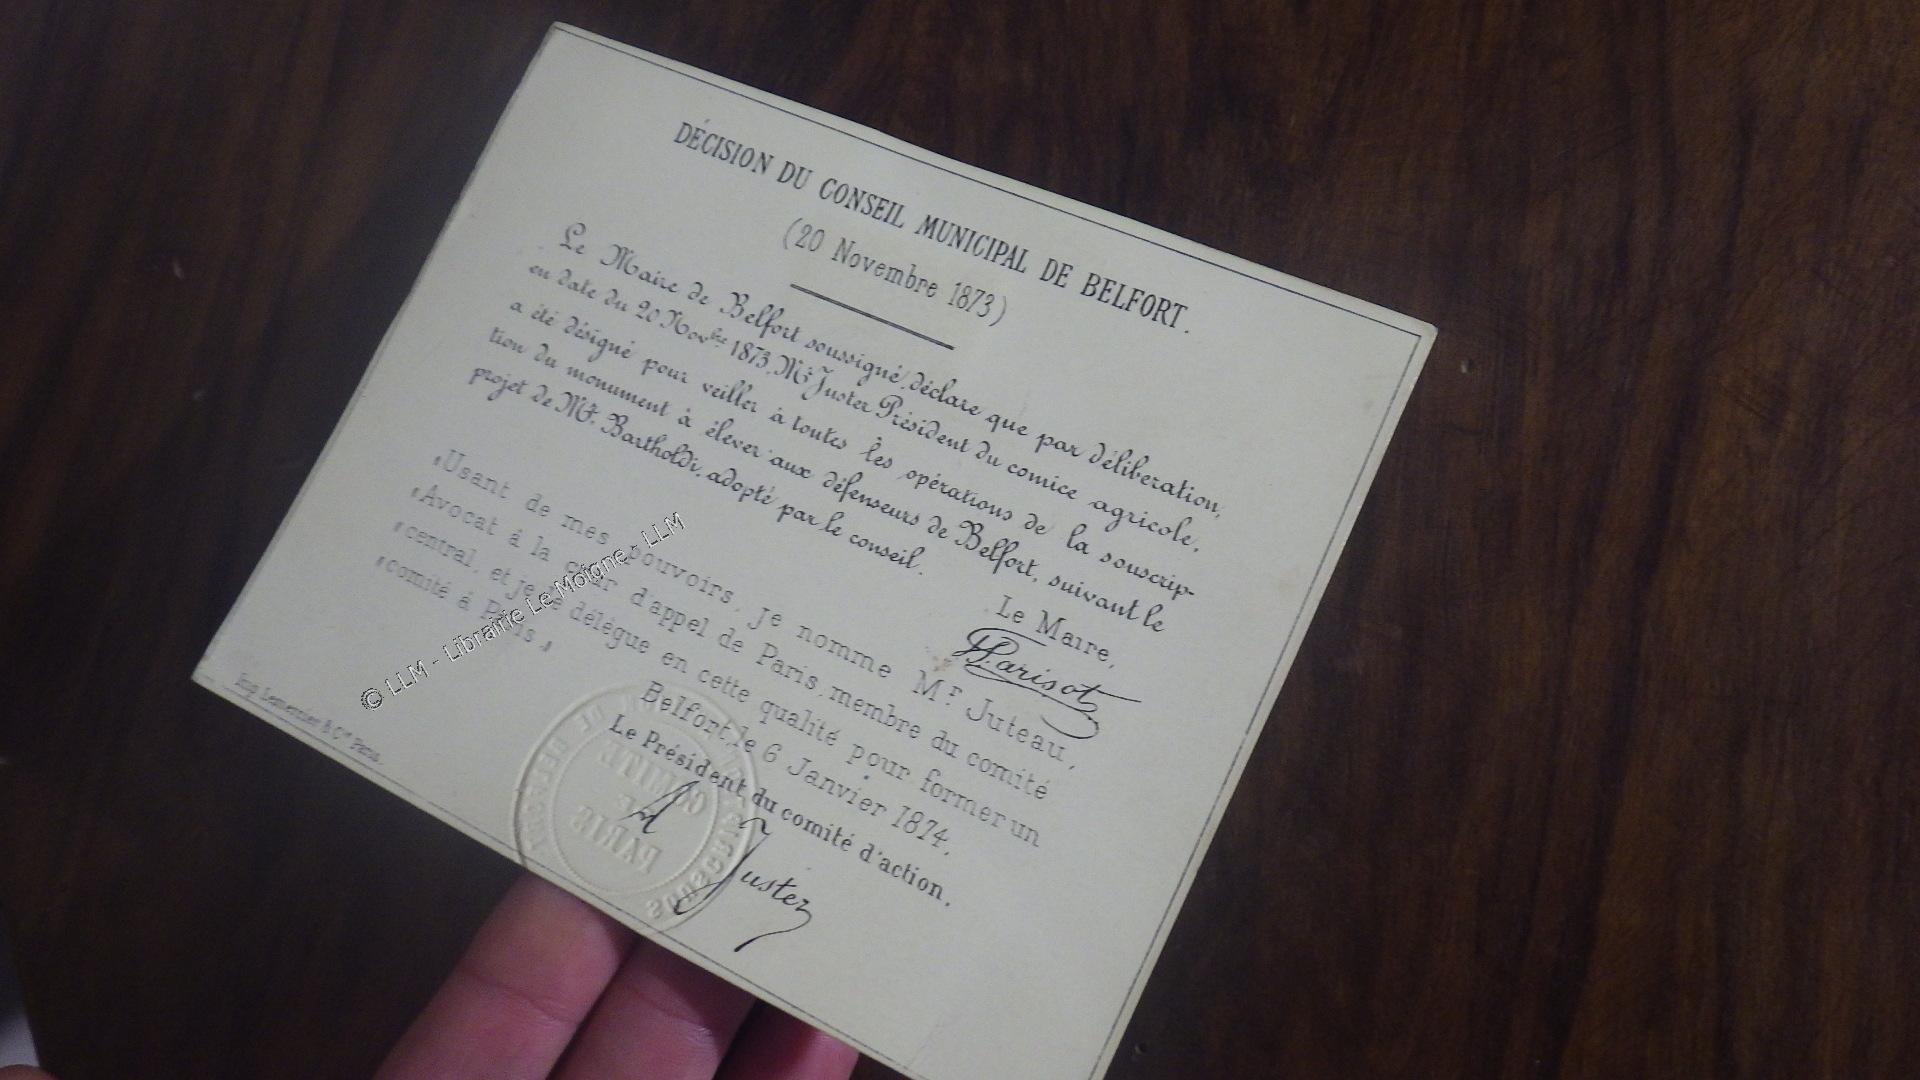 DÉCISION DU CONSEIL MUNICIPAL DE BELFORT.
(20 Novembre 1873)
Le Maire de Belfort soussigné, déclare que par délibération,
en date du 20 Novbre 1873, Mr. Juster Président du comice agricole,
a été désigné pour veiller à toutes les opérations de la souscrip-
tion du monument à élever aux défenseurs de Belfort, suivant le
projet de Mr. Bartholdi, adopté par le conseil.
Le Maire,
Parisot
"Usant de mes pouvoirs, je nomme Mr. Juteau,
"Avocat à la cour d'appel de Paris, membre du comité
"central, et je le délégue en cette qualité pour former un
"comité à Paris."
Belfort, le 6 Janvier 1874.
Le Président du comité d'action.
A Juster
COMITÉ
DE
PARIS
Imp. Lemercier & Cie Paris.
© LLM - Librairie Le Moigne - LLM